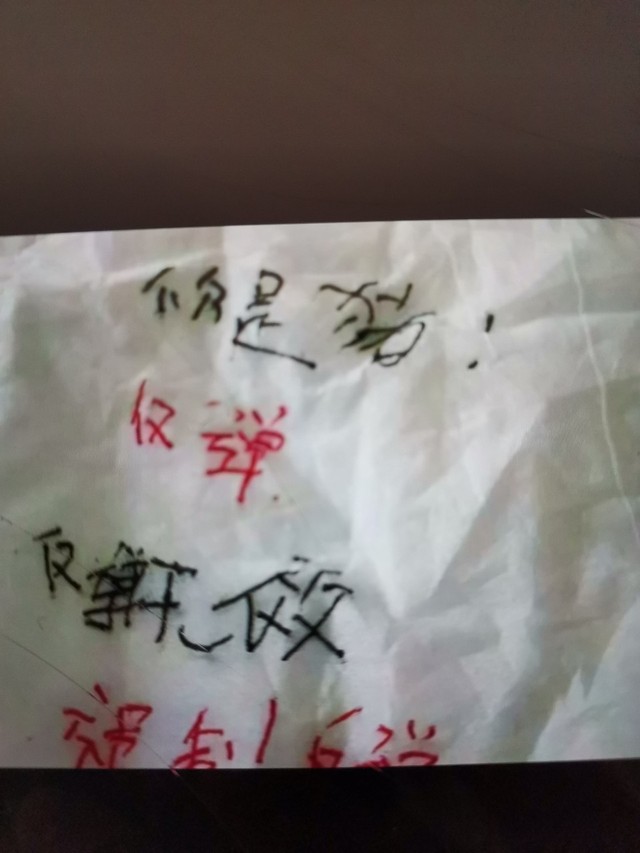 你是猪！
反弹
反弹无效
强制反弹